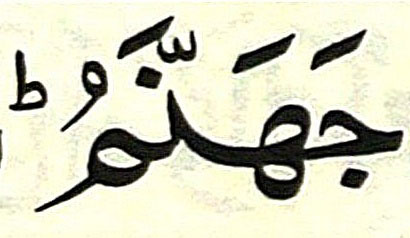 جَهَنَّمُ ؕ